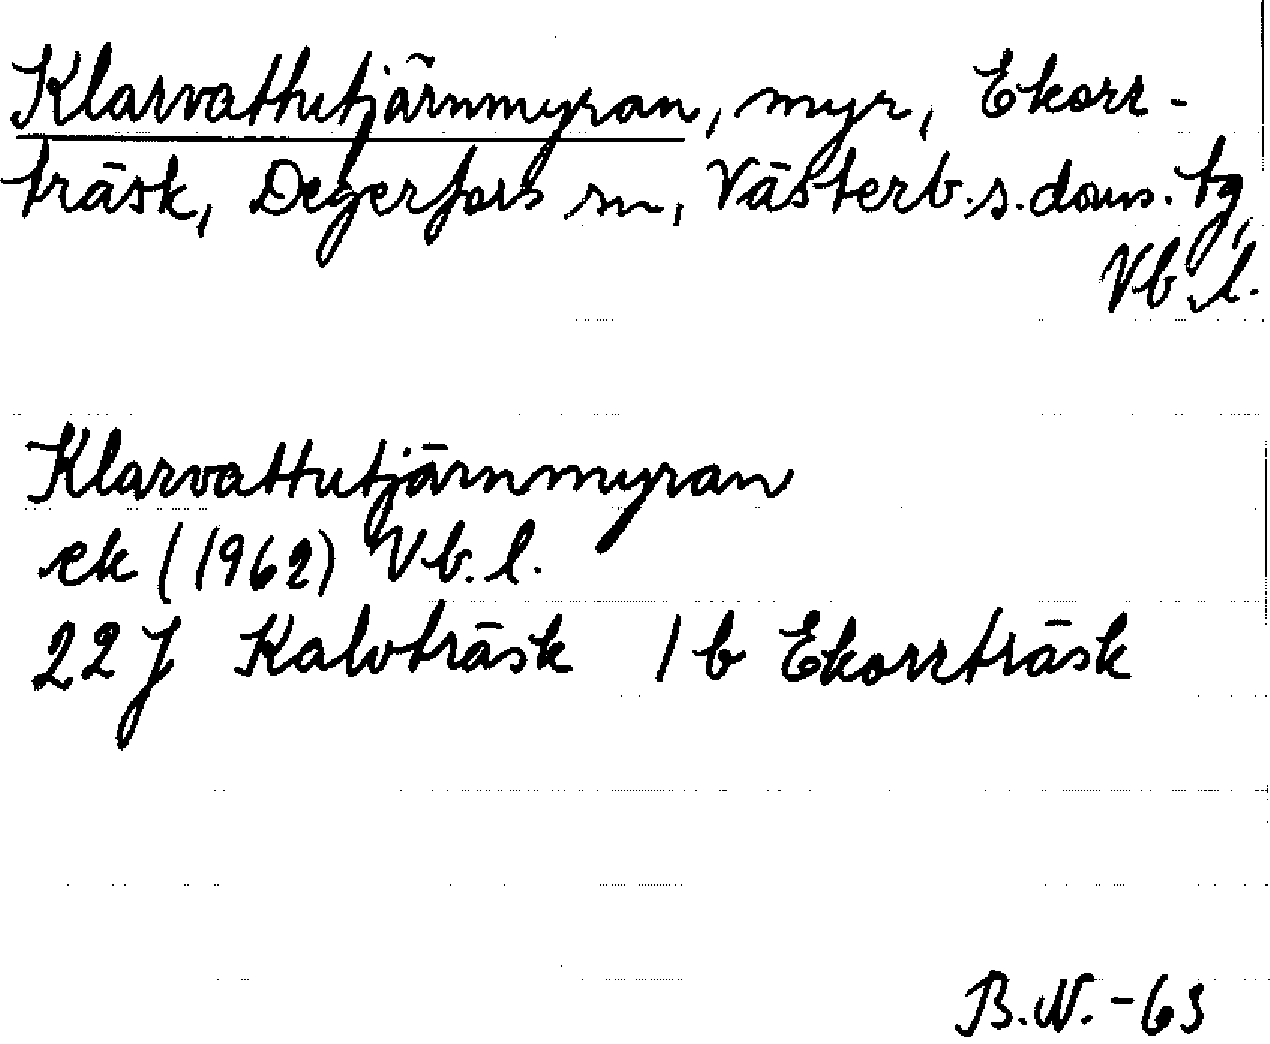 Klarvattutjärnmyran, myr, Ekorr-
träsk, Degerfors sn, Västerb.s.doms. tg,
Vb.l.
Klarvattutjärnmyran
ek (1962) Vb.l.
22J Kalvträsk 1b Ekorrträsk
B.N.-63